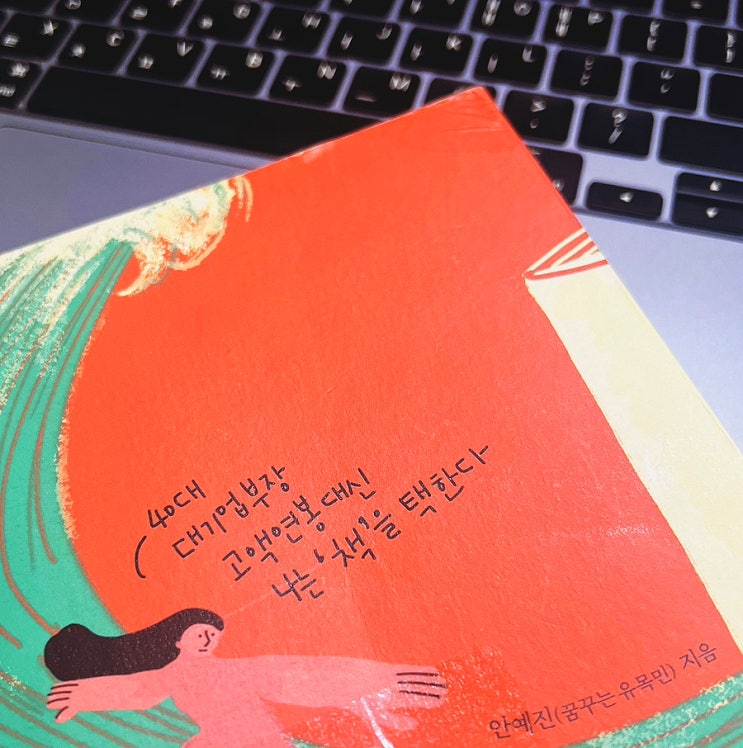 40대
대기업부장
고액연봉대신
나는 '책'을 택한다
안예진(꿈꾸는 유목민) 지음